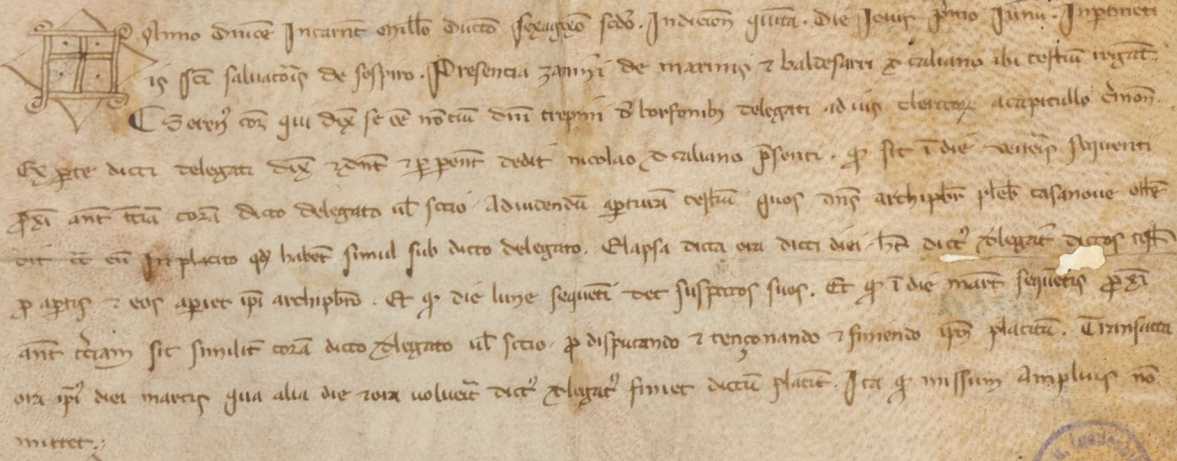 Anno dnice Incarnt millo ducto sexagxo scdo. Indicion quita. die Iouis prio Iunii. In ptineti
is sci saluatoris de sospiro. Presencia de marinis & baldesarri d caliano ibi testiu rogat.
Seren9 cor qui dix se ee nociu dni trepini d borsonib delegati ad clericor a capitullo cmon.
Ex parte dicti delegati dix & dedit nicolao d caliano psenti. qd sit i die ueneris sequenti
pxi ant tciam cora dicto delegato ul socio. Ad uidendu apturam testiu quos dns archipbr pleb casanoue oste
dit eu In placito qd habet simul sub dicto delegato. Elapsa dicta ora dicti diei. dict9 dlegat9 dictos test
p aptis & eos apiet ipi archipbro. Et qd die lune sequeti det suspectos suos. Et qd i die mart sequetis pxi
ant tciam sit similit cora dicto dlegato ul socio. p disputando & tençonando & finiendo ipm placitu. Transacta
ora ipi diei martis qua alia die & ora uoluerit dict9 dlegat9 finiet dictu placit. Ita qd missum ampluis no
mittet.